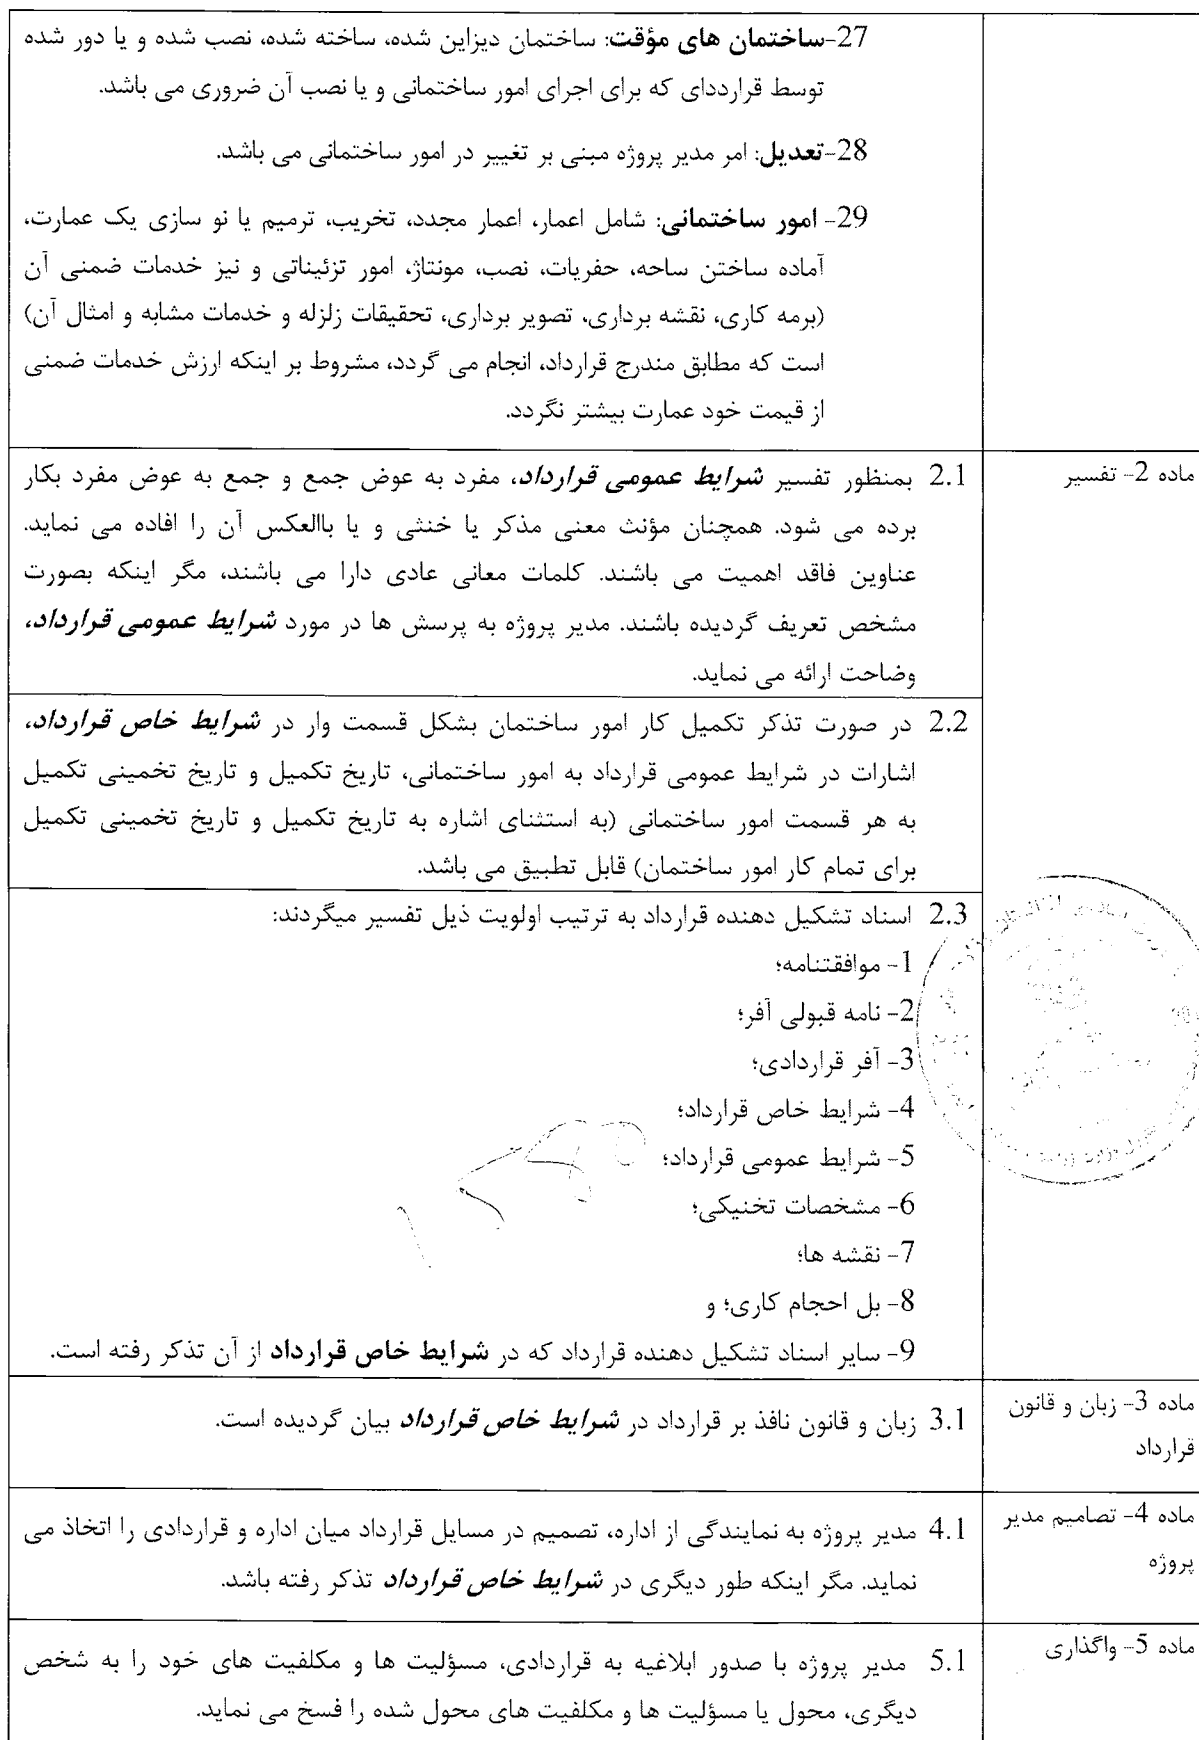 27-ساختمان های مؤقت: ساختمان دیزاین شده، ساخته شده، نصب شده و یا دور شده
توسط قرارددای که برای اجرای امور ساختمانی و یا نصب آن ضروری می باشد.
28-تعدیل: امر مدیر پروژه مبنی بر تغییر در امور ساختمانی می باشد.
29- امور ساختمانی: شامل اعمار، اعمار مجدد، تخریب، ترمیم یا نو سازی یک عمارت،
آماده ساختن ساحه، حفریات، نصب، مونتاژ، امور تزئیناتی و نیز خدمات ضمنی آن
(برمه کاری، نقشه برداری، تصویر برداری، تحقیقات زلزله و خدمات مشابه و امثال آن)
است که مطابق مندرج قرارداد، انجام می گردد، مشروط بر اینکه ارزش خدمات ضمنی
از قیمت خود عمارت بیشتر نگردد.
ماده 2- تفسیر
2.1 بمنظور تفسیر شرایط عمومی قرارداد، مفرد به عوض جمع و جمع به عوض مفرد بکار
برده می شود. همچنان مؤنث معنی مذکر یا خنثی و یا باالعکس آن را افاده می نماید.
عناوین فاقد اهمیت می باشند. کلمات معانی عادی دارا می باشند، مگر اینکه بصورت
مشخص تعریف گردیده باشند. مدیر پروژه به پرسش ها در مورد شرایط عمومی قرارداد،
وضاحت ارائه می نماید.
2.2 در صورت تذکر تکمیل کار امور ساختمان بشکل قسمت وار در شرایط خاص قرارداد،
اشارات در شرایط عمومی قرارداد به امور ساختمانی، تاریخ تکمیل و تاریخ تخمینی تکمیل
به هر قسمت امور ساختمانی (به استثنای اشاره به تاریخ تکمیل و تاریخ تخمینی تکمیل
برای تمام کار امور ساختمان) قابل تطبیق می باشد.
2.3 اسناد تشکیل دهنده قرارداد به ترتیب اولویت ذیل تفسیر میگردند:
1- موافقتنامه؛
2- نامه قبولی آفر؛
3- آفر قراردادی؛
4- شرایط خاص قرارداد؛
5- شرایط عمومی قرارداد؛
6- مشخصات تخنیکی؛
7- نقشه ها؛
8- بل احجام کاری؛ و
9- سایر اسناد تشکیل دهنده قرارداد که در شرایط خاص قرارداد از آن تذکر رفته است.
ماده 3- زبان و قانون
قرارداد
3.1 زبان و قانون نافذ بر قرارداد در شرایط خاص قرارداد بیان گردیده است.
ماده 4- تصامیم مدیر
پروژه
4.1 مدیر پروژه به نمایندگی از اداره، تصمیم در مسایل قرارداد میان اداره و قراردادی را اتخاذ می
نماید. مگر اینکه طور دیگری در شرایط خاص قرارداد تذکر رفته باشد.
ماده 5- واگذاری
5.1 مدیر پروژه با صدور ابلاغیه به قراردادی، مسؤلیت ها و مکلفیت های خود را به شخص
دیگری، محول یا مسؤلیت ها و مکلفیت های محول شده را فسخ می نماید.